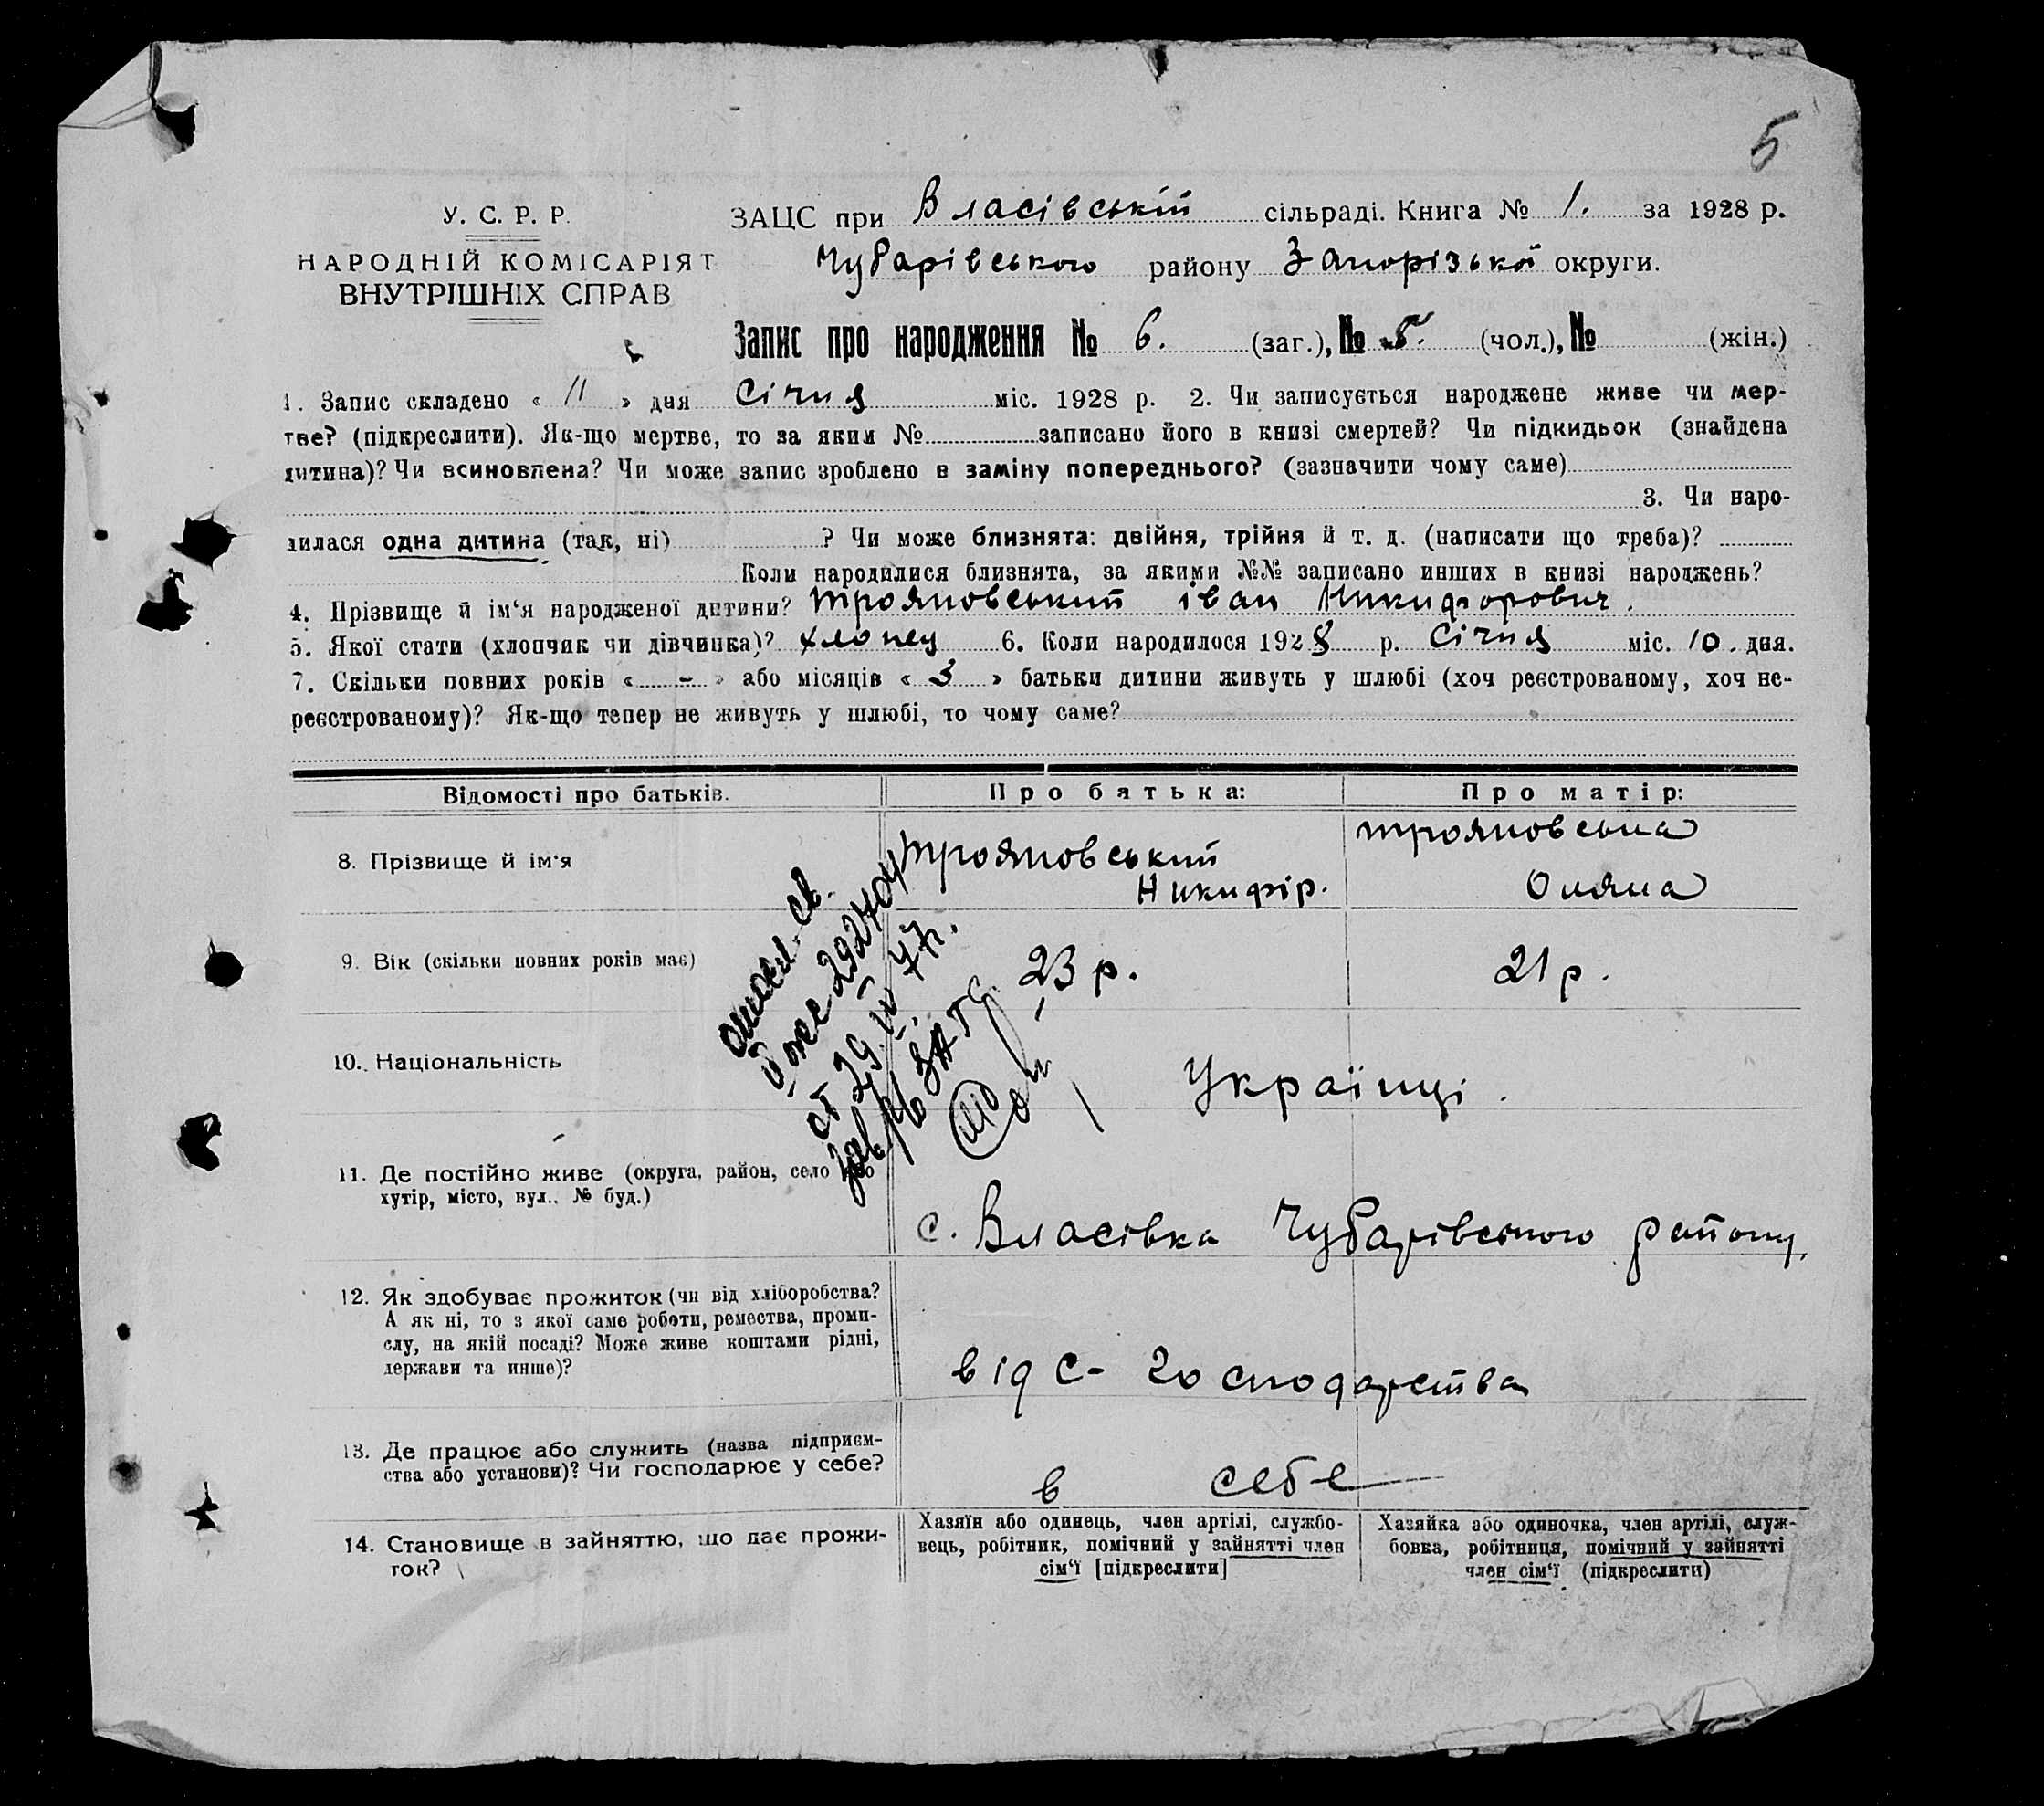 5
У. С. Р. Р.
НАРОДНІЙ КОМІСАРІЯТ
ВНУТРІШНІХ СПРАВ
ЗАЦС при Власівській сільраді. Книга № 1. за 1928 р.
Чубарівського району Запорізької округи.
Запис про народження № 6. (заг.), № 5. (чол.), № (жін.)
1. Запис складено « 11 » дня Січня міс. 1928 р. 2. Чи записується народжене живе чи мер-
тве? (підкреслити). Як-що мертве, то за яким № записано його в книзі смертей? Чи підкидьок (знайдена
дитина)? Чи всиновлена? Чи може запис зроблено в заміну попереднього? (зазначити чому саме)
3. Чи наро-
дилася одна дитина (так, ні) ? Чи може близнята: двійня, трійня й т. д. (написати що треба)?
Коли народилися близнята, за якими №№ записано инших в книзі народжень?
4. Прізвище й ім‘я народженої дитини? Трояновський іван Никифорович.
5. Якої стати (хлопчик чи дівчинка)? хлопец 6. Коли народилося 1928 р. Січня міс. 10. дня.
7. Скільки повних років « - » або місяців « 3 » батьки дитини живуть у шлюбі (хоч реєстрованому, хоч не-
реєстрованому)? Як-що тепер не живуть у шлюбі, то чому саме?
Відомості про батьків.
Про батька:
Про матір:
8. Прізвище й ім‘я
Трояновський
Никифір.
Трояновська
Оляна
9. Вік (скільки повних років має)
23 р.
21 р.
10. Національність
Українці.
11. Де постійно живе (округа, район, село або
хутір, місто, вул.. № буд.)
с. Власівка Чубарівського району,
12. Як здобуває прожиток (чи від хліборобства?
А як ні, то з якої саме роботи, ремества, проми-
слу, на якій посаді? Може живе коштами рідні,
держави та инше)?
від с- господарства
13. Де працює або служить (назва підприєм-
ства або установи)? Чи господарює у себе?
в себе
14. Становище в зайняттю, що дає прожи-
ток?
Хазяїн або одинець, член артілі, службо-
вець, робітник, помічний у зайнятті член
сім‘ї [підкреслити]
Хазяйка або одиночка, член артілі, служ-
бовка, робітниця, помічний у зайнятті
член сім‘ї (підкреслити)
от 29. IV 47г.